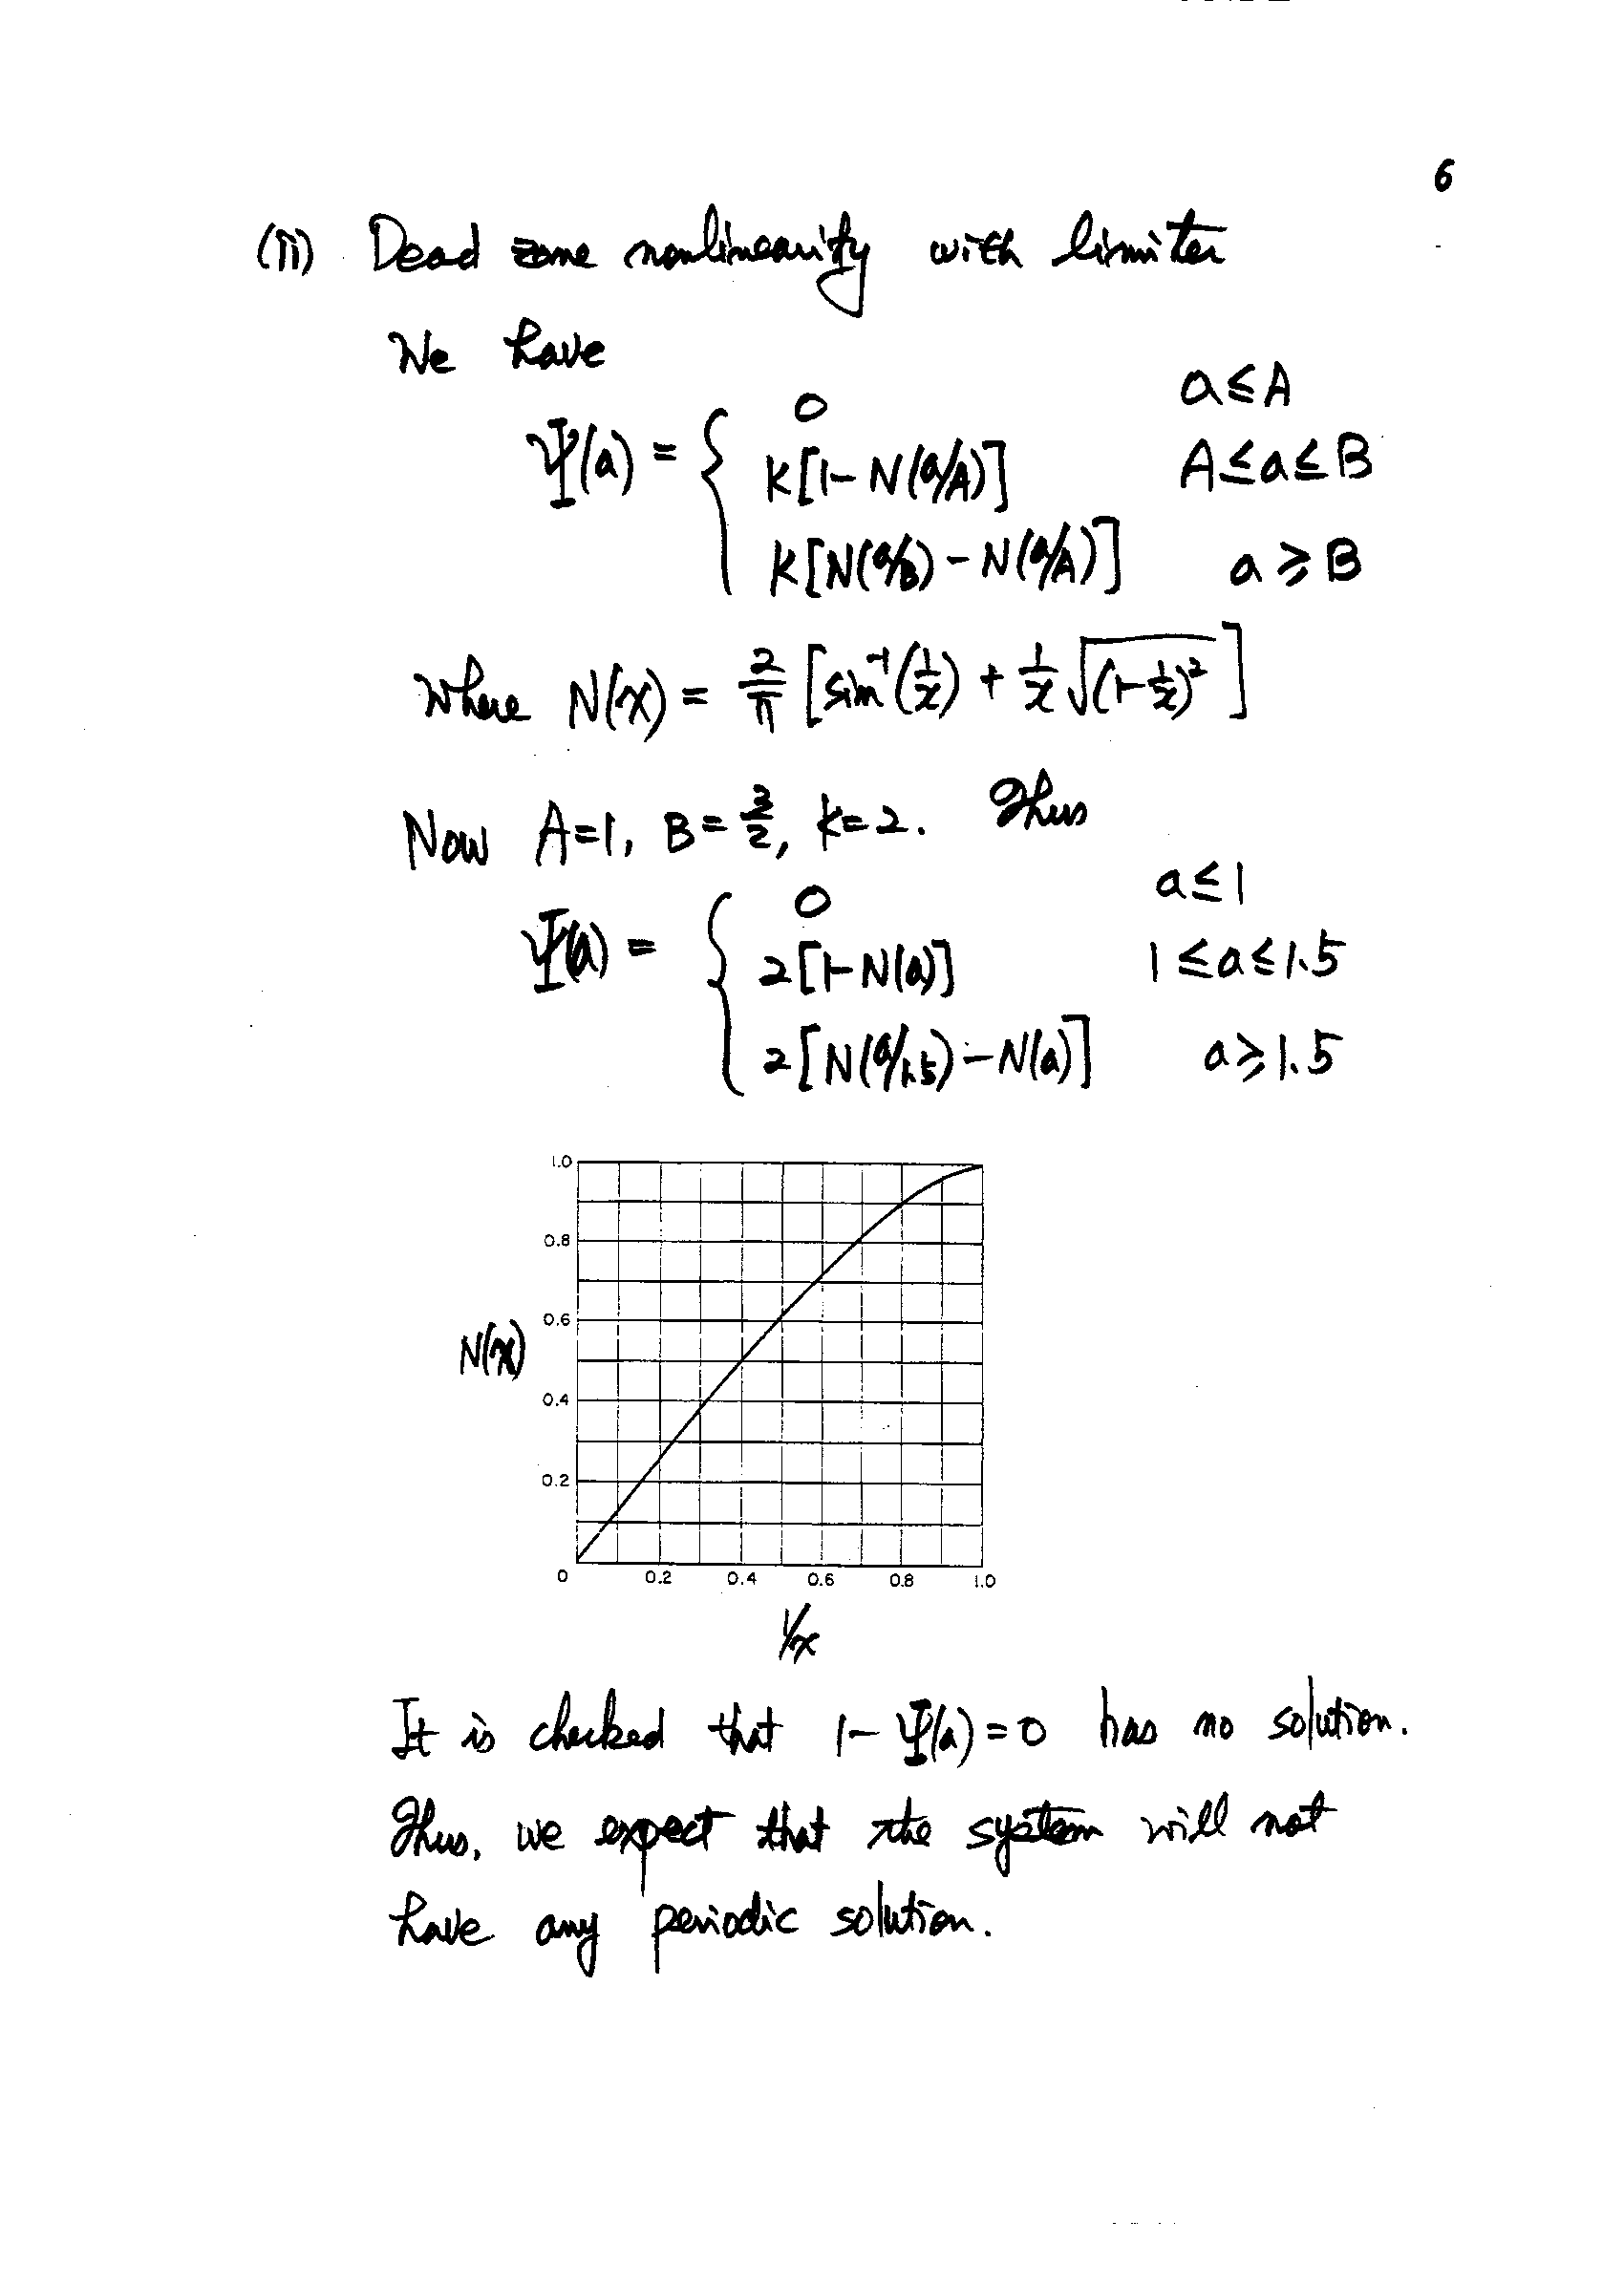 6
(ii) Dead zone nonlinearity with limiter
We have
Ψ(a) = { 0 a ≤ A
K[1 - N(a/A)] A ≤ a ≤ B
K[N(a/B) - N(a/A)] a ≥ B
where N(x) = 2/π [sin⁻¹(1/x) + 1/x √(1-1/x)²]
Now A=1, B=3/2, K=2. Thus
Ψ(a) = { 0 a ≤ 1
2[1-N(a)] 1 ≤ a ≤ 1.5
2[N(a/1.5) - N(a)] a ≥ 1.5
1.0
0.8
0.6
N(x)
0.4
0.2
0 0.2 0.4 0.6 0.8 1.0
1/x
It is checked that 1 - Ψ(a) = 0 has no solution.
Thus, we expect that the system will not
have any periodic solution.